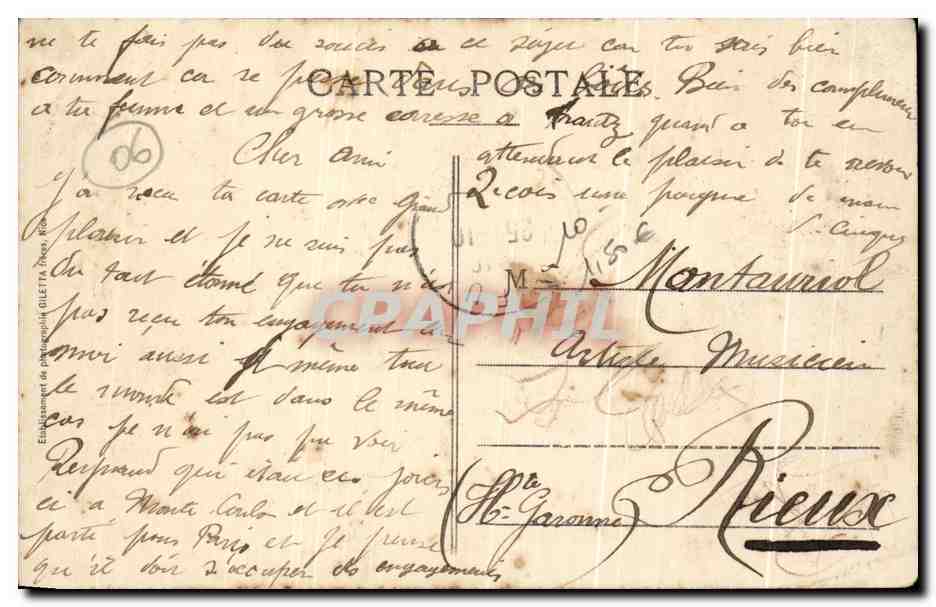 ne te fais pas du soucis a ce sujet car tu sais bien
comment ca se passe Bien des complimen
a ta femme et un grosse caresse a quand a toi en
CARTE POSTALE
06
Cher ami
J'ai reçu ta carte avec Grand
plaisir et je ne suis pas
du tout étonné que tu n'ais
pas reçu ton engagement car
moi aussi et même tout
le monde est dans le même
cas je n'ai pas pu voir
qui était ces jours
ci a Monte Carlo et il est
parti pour Paris et je pense
qu'il doit s'occuper des engagements
attendant le plaisir de te revoir
Recois une poigne de main
10
1,50 €
M Montauriol
Artiste Musicien
Rieux
(Hte Garonne)
Etablissement de photographie GILETTA frères, Nice
CPAPHIL